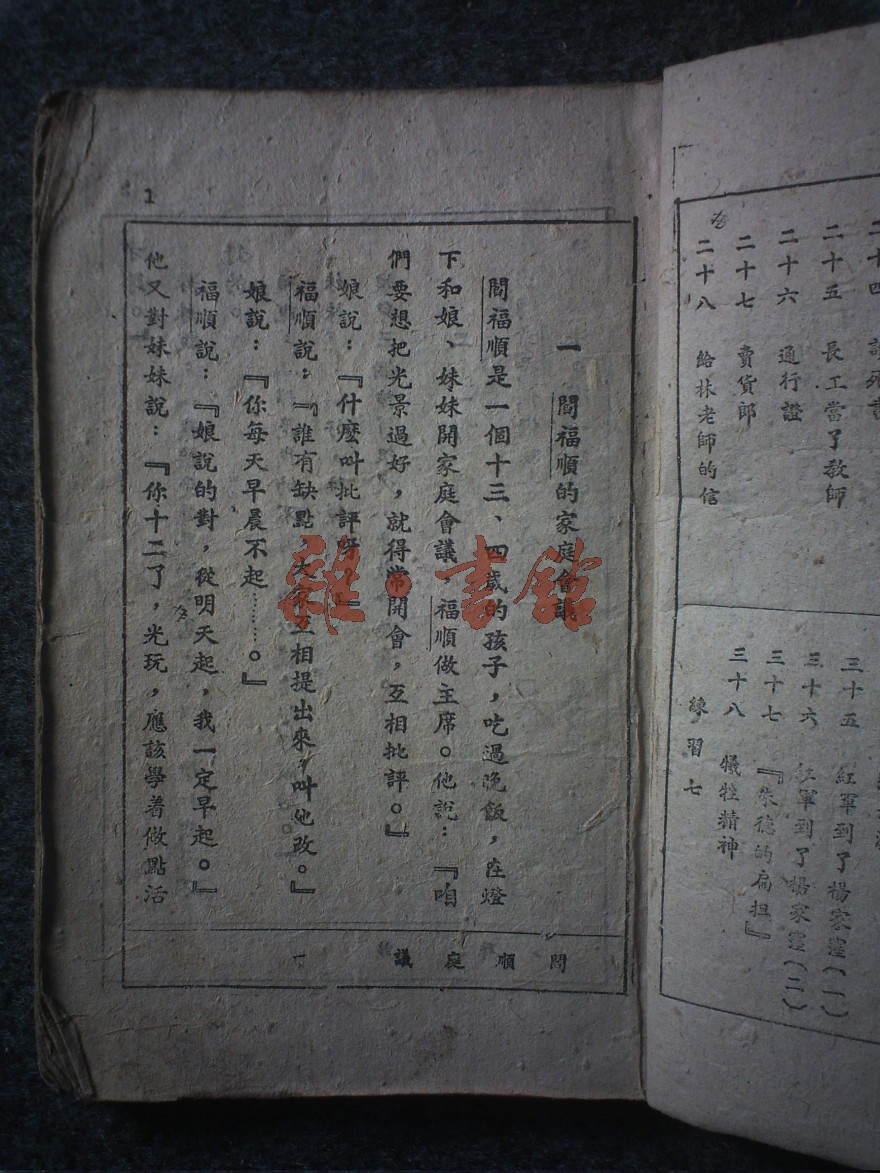 二十五　長工當了教師
二十六　通行證
二十七　賣貨郎
二十八　給林老師的信
三十五　紅軍到了楊家窪（一）
三十六　紅軍到了楊家窪（二）
三十七　『朱德的扁担』
三十八　犧牲精神
練習七
1
一　閻福順的家庭會議
閻福順是一個十三、四歲的孩子，吃過晚飯，在燈
下和娘、妹妹開家庭會議　福順做主席。他說：『咱
們要想把光景過好，就得常開會，互相批評。』
娘說：『什麼叫批評呀。』
福順說：『誰有缺點，大家互相提出來，叫他改。』
娘說：『你每天早晨不起………。』
福順說：『娘說的對，從明天起，我一定早起。』
他又對妹妹說：『你十二了，光玩，應該學着做點活
閻　順　庭　議　一
雜·書館